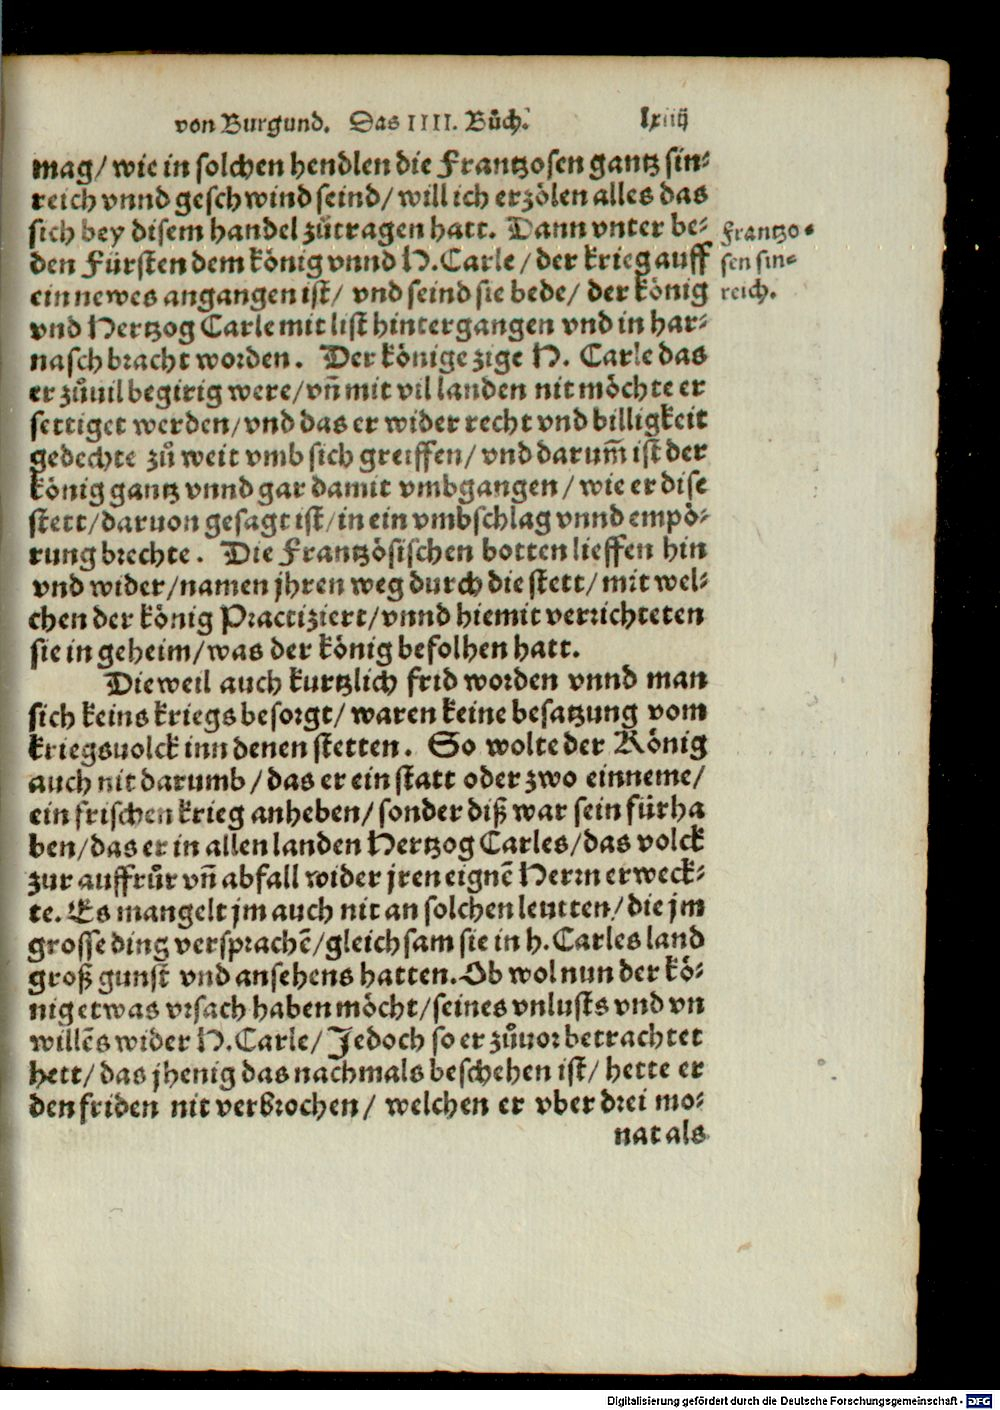 von Burgund. Das IIII. Bůch. lxiiij
mag/ wie in solchen hendlen die Frantzosen gantz sin⸗
reich vnnd geschwind seind/ will ich erzölen alles das
sich bey disem handel zůtragen hatt. Dann vnter be⸗
den Fürsten dem könig vnnd H. Carle/ der krieg auff
ein newes angangen ist/ vnd seind sie bede/ der könig
vnd Hertzog Carle mit list hintergangen vnd in har⸗
nasch bracht worden. Der könige zige H. Carle das
er zůuil begirig were/ vñ mit vil landen nit möchte er
settiget werden/ vnd das er wider recht vnd billigkeit
gedechte zů weit vmb sich greiffen/ vnd darum̃ ist der
könig gantz vnnd gar damit vmbgangen/ wie er dise
stett/ daruon gesagt ist/ in ein vmbschlag vnnd empö⸗
rung brechte. Die Frantzösischen botten lieffen hin
vnd wider/ namen jhren weg durch die stett/ mit wel⸗
chen der könig Practiziert/ vnnd hiemit verrichteten
sie in geheim/ was der könig befolhen hatt.
Dieweil auch kurtzlich frid worden vnnd man
sich keins kriegs besorgt/ waren keine besatzung vom
kriegsuolck inn denen stetten. So wolte der König
auch nit darumb/ das er ein statt oder zwo einneme/
ein frischen krieg anheben/ sonder diß war sein fürha
ben/ das er in allen landen Hertzog Carles/ das volck
zur auffrůr vñ abfall wider jren eignẽ Herrn erweck⸗
te. Es mangelt jm auch nit an solchen leutten/ die jm
grosse ding versprachẽ/ gleichsam sie in h. Carles land
groß gunst vnd ansehens hatten. Ob wol nun der kö⸗
nig etwas vrsach haben möcht/ seines vnlusts vnd vn
willẽs wider H. Carle/ Jedoch so er zůuor betrachtet
hett/ das jhenig das nachmals beschehen ist/ hette er
den friden nit verbrochen/ welchen er vber drei mo⸗
nat als
Frantzo⸗
sen sin⸗
reich.
Digitalisierung gefördert durch die Deutsche Forschungsgemeinschaft - DFG